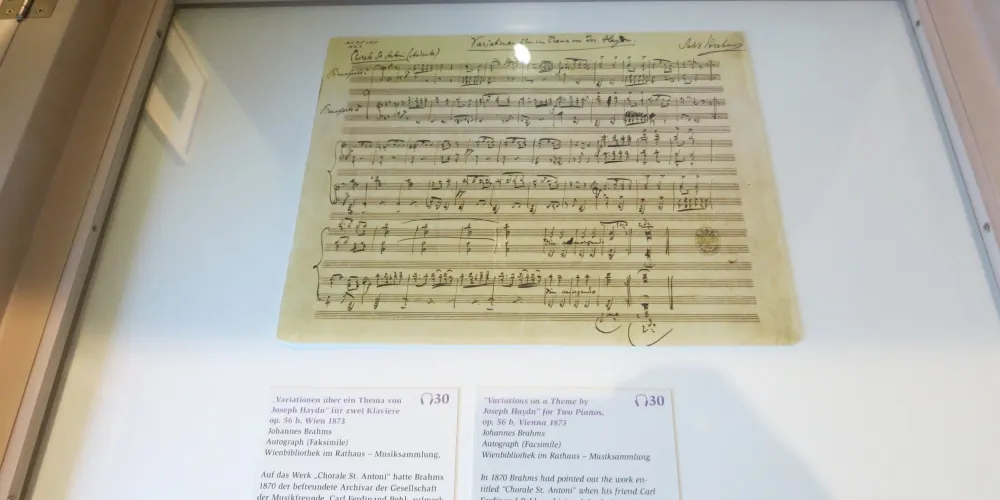 Variationen über ein Thema von Jos. Haydn.
Chorale St. Antoni (Andante)
Pianoforte 1
Pianoforte 2
dim
dim
„Variationen über ein Thema von
Joseph Haydn" für zwei Klaviere
op. 56 b, Wien 1873
Johannes Brahms
Autograph (Faksimile)
Wienbibliothek im Rathaus – Musiksammlung.
Auf das Werk „Chorale St. Antoni" hatte Brahms
1870 der befreundete Archivar der Gesellschaft
der Musikfreunde, Carl Ferdinand Pohl, aufmerk-
30
"Variations on a Theme by
Joseph Haydn" for Two Pianos,
op. 56 b, Vienna 1873
Johannes Brahms
Autograph (Facsimile)
Wienbibliothek im Rathaus – Musiksammlung
In 1870 Brahms had pointed out the work en-
titled "Chorale St. Antoni" when his friend Carl
Ferdinand Pohl,
30